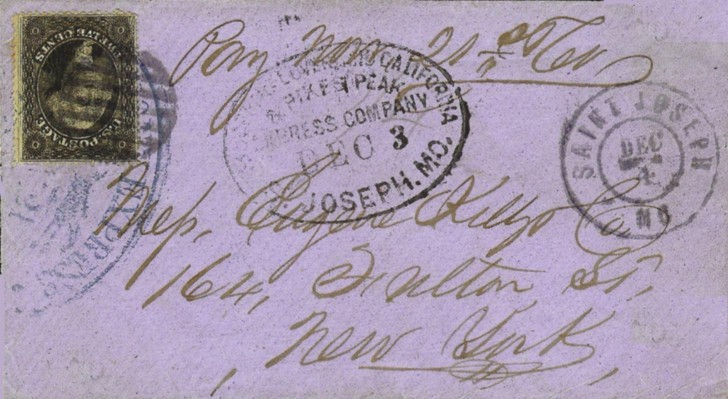 TWELVE CENTS
U.S. POSTAGE
Pony
OVERLAND CALIFORNIA
PIKE'S PEAK
EXPRESS COMPANY
DEC 3
JOSEPH. MO.
SAINT JOSEPH
DEC
4
MO
Eugene Kelly Co
164, Fulton St,
New York